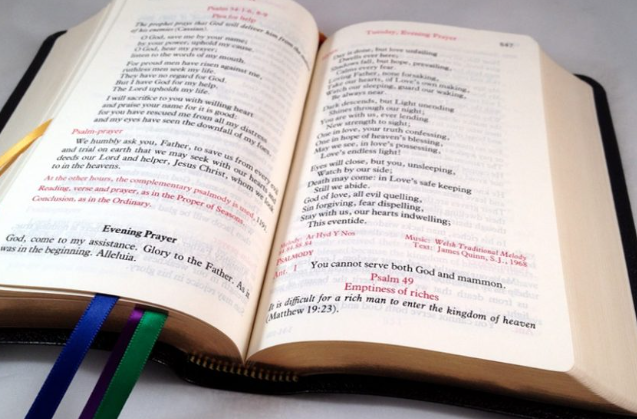 Psalm 54:1-6, 8-9
Plea for help
The prophet prays that God will deliver him from the
of his enemies (Cassian).
O God, save me by your name;
by your power, uphold my cause.
O God, hear my prayer;
listen to the words of my mouth.
For proud men have risen against me,
ruthless men seek my life.
They have no regard for God.
But I have God for my help.
The Lord upholds my life.
I will sacrifice to you with willing heart
and praise your name for it is good:
for you have rescued me from all my distress
and my eyes have seen the downfall of my foes.
Psalm-prayer
We humbly ask you, Father, to save us from
and trial on earth that we may seek with our hearts and
deeds our Lord and helper, Jesus Christ, whom we
to in the heavens.
At the other hours, the complementary psalmody is used, 1191.
Reading, verse and prayer, as in the Proper of Seasons.
Conclusion, as in the Ordinary.
Evening Prayer
God, come to my assistance. Glory to the Father. As it
was in the beginning. Alleluia.
Tuesday, Evening Prayer
Day is done, but love unfailing
Dwells ever here;
Shadows fall, but hope, prevailing,
Calms every fear.
Loving Father, none forsaking,
Take our hearts, of Love's own making,
Watch our sleeping, guard our waking,
Be always near.
Dark descends, but Light unending
Shines through our night;
You are with us, ever lending
New strength to sight;
One in love, your truth confessing,
One in hope of heaven's blessing,
May we see, in love's possessing,
Love's endless light!
Eyes will close, but you, unsleeping,
Watch by our side;
Death may come: in Love's safe keeping
Still we abide.
God of love, all evil quelling,
Sin forgiving, fear dispelling,
Stay with us, our hearts indwelling;
This eventide.
Melody: Ar Hyd Y Nos
Music: Welsh Traditional Melody
84.84.88.84
Text: James Quinn, S.J., 1968
PSALMODY
Ant. 1 You cannot serve both God and mammon.
Psalm 49
Emptiness of riches
It is difficult for a rich man to enter the kingdom of heaven
(Matthew 19:23).